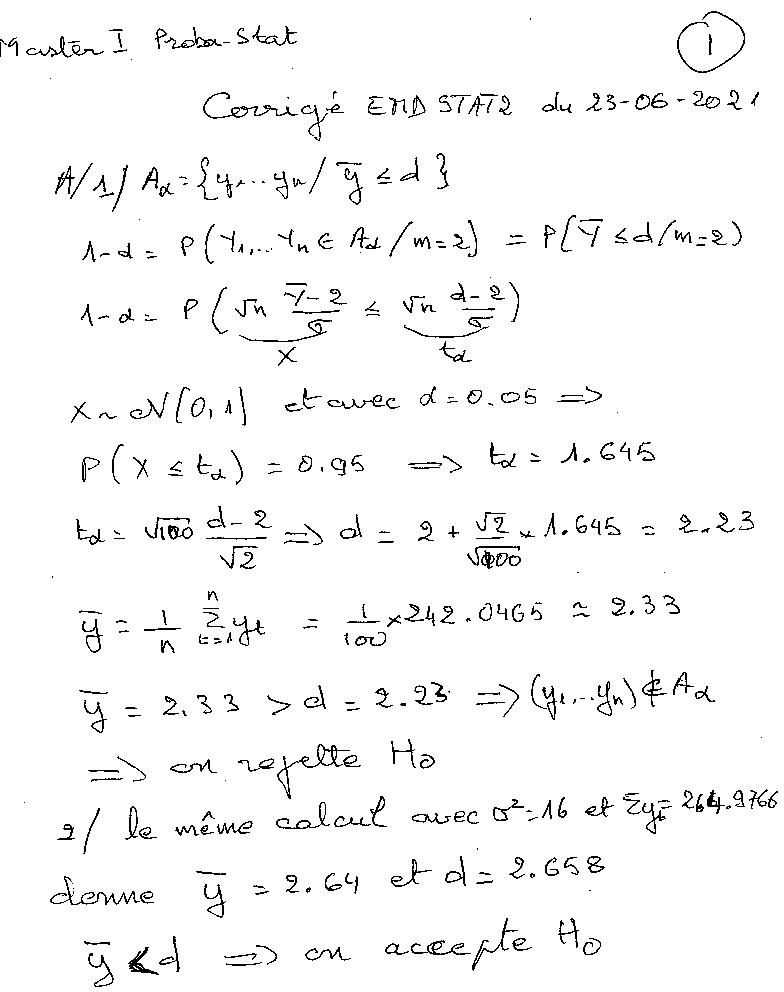 Master I Proba-Stat
1
Corrigé EMD STAT2 du 23-06-2021
A/1/ Aα = {y1...yn / ȳ ≤ d}
1-α = P(Y1,...Yn ∈ Aα / m=2) = P(Ȳ ≤ d/m=2)
1-α = P(√n (Ȳ-2)/σ ≤ √n (d-2)/σ)
X tα
X ~ N(0,1) et avec α = 0.05 =>
P(X ≤ tα) = 0.95 => tα = 1.645
tα = √100 (d-2)/√2 => d = 2 + √2/√100 × 1.645 = 2.23
ȳ = 1/n Σ_{t=1}^{n} yt = 1/100 × 242.0465 ≃ 2.33
ȳ = 2.33 > d = 2.23 => (y1...yn) ∉ Aα
=> on rejette H0
2/ le même calcul avec σ² = 16 et Σyt = 264.9766
donne ȳ = 2.64 et d = 2.658
ȳ < d => on accepte H0